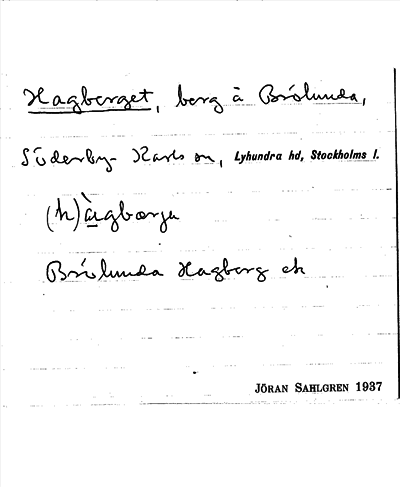 Hagberget, berg å Brölunda,
Söderby-Karls sn, Lyhundra hd, Stockholms l.
Brölunda Hagberg ek
JÖRAN SAHLGREN 1937